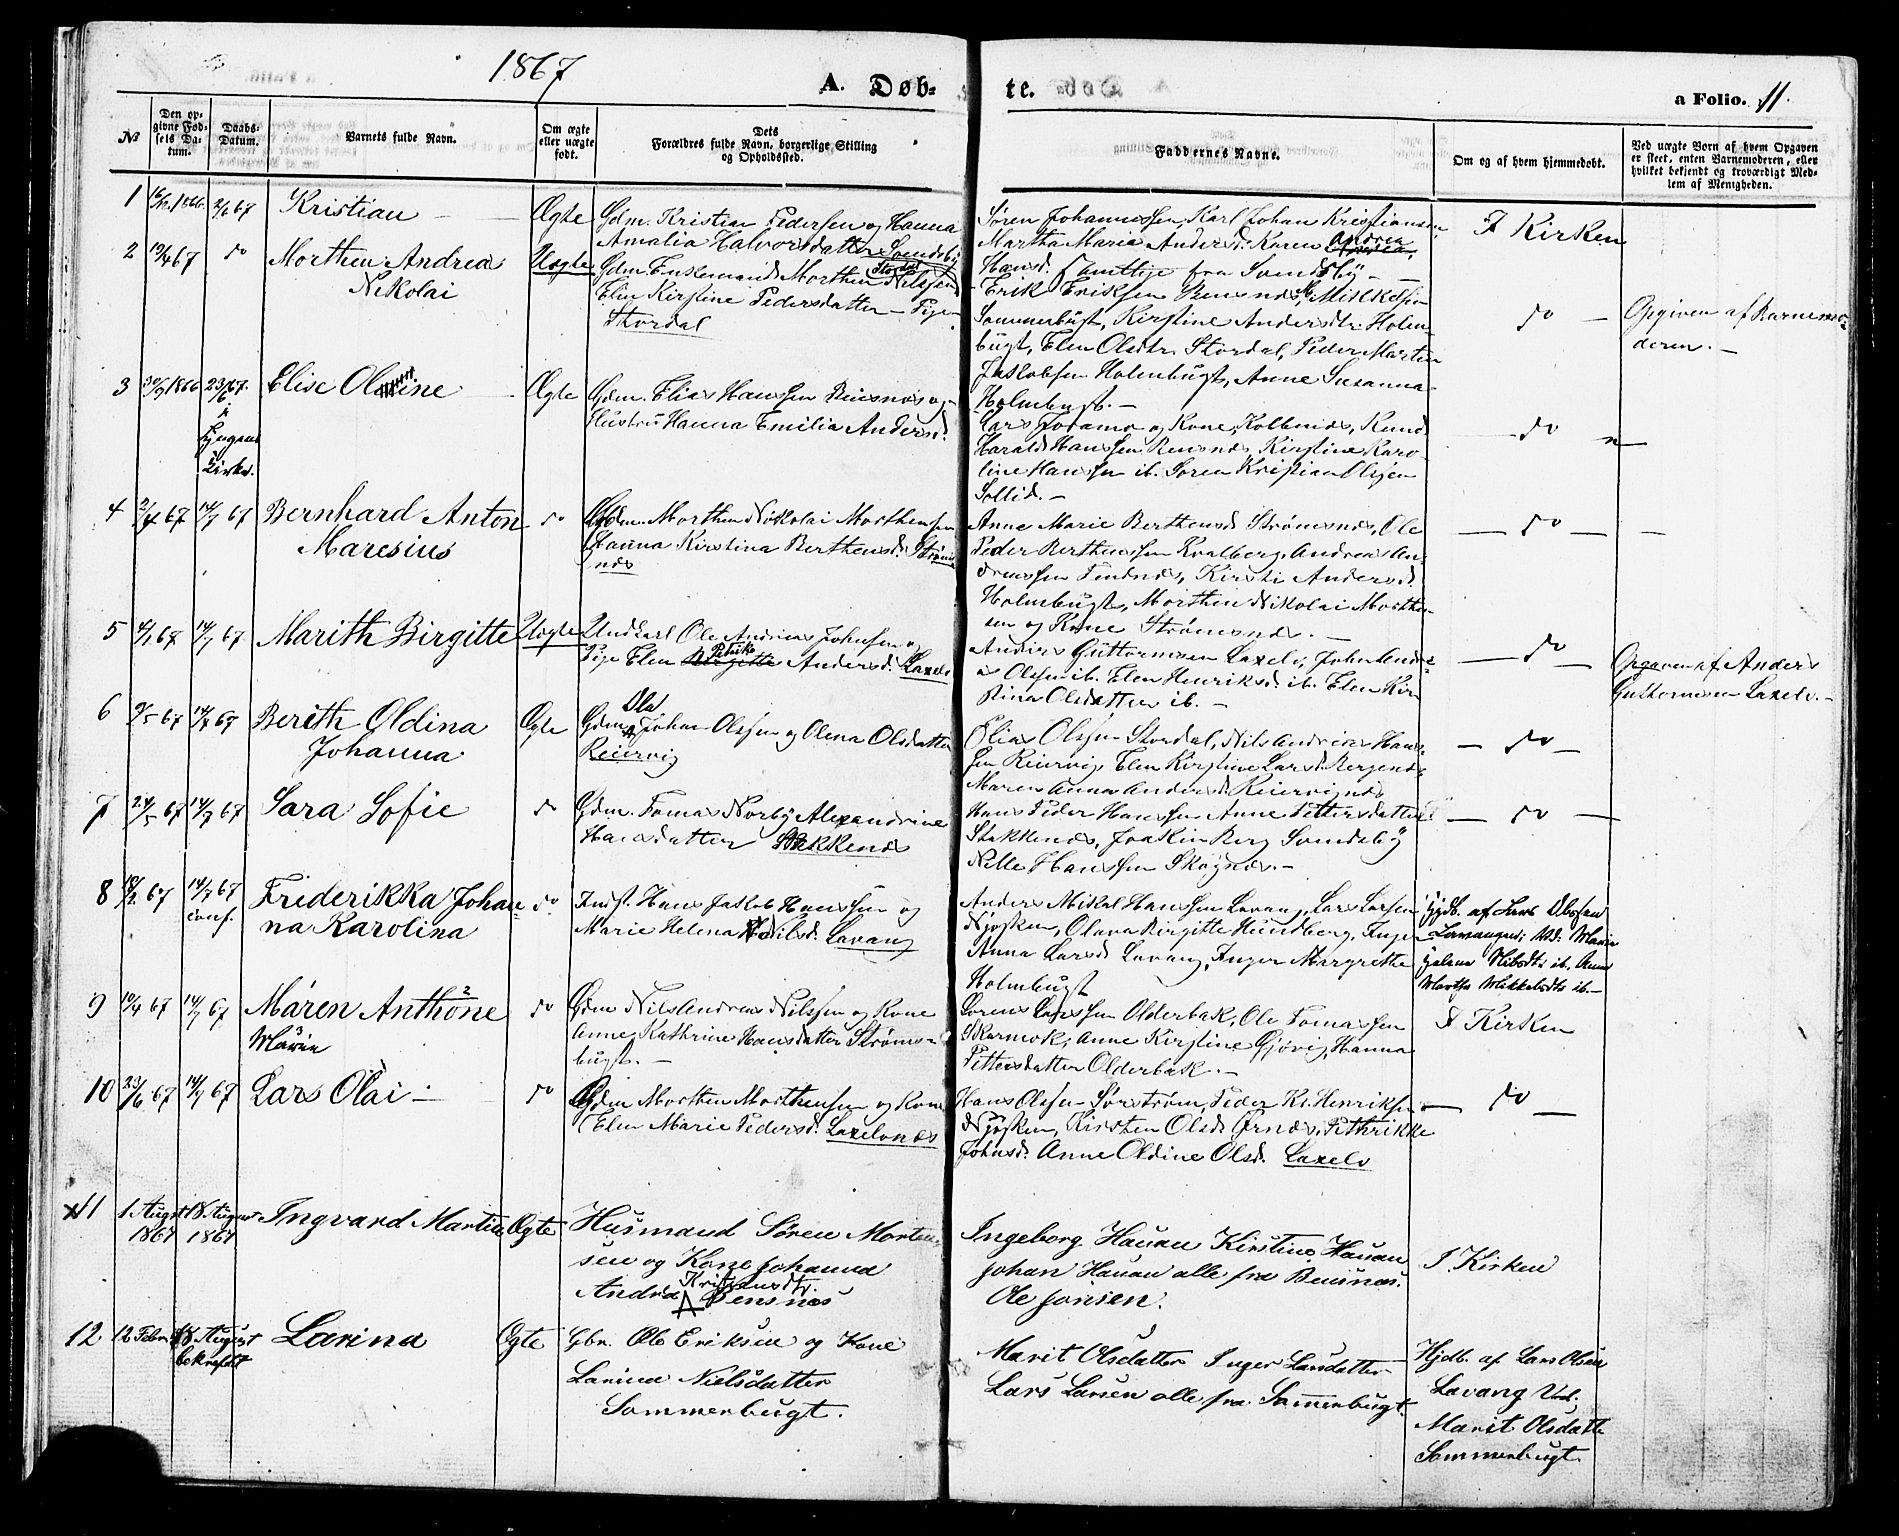 1867
A. Døb-
te.
a Folio. 11.
№
Den op-
givne Fød-
sels Da-
tum.
Daabs-
Datum.
Barnets fulde Navn.
Om ægte
eller uægte
født.
Dets
Forældres fulde Navn, borgerlige Stilling
og Opholdssted.
Faddernes Navne.
Om og af hvem hjemmedøbt.
Ved uægte Børn af hvem Opgaven
er skeet, enten Barnemoderen, eller
hvilket bekjendt og troværdigt Med-
lem af Menigheden.
1 16/12 1866 2/6 67 Kristian — Ægte Gdm. Kristian Pedersen og Hanna
Amalia Halvorsdatter Sandsby
Søren Johannessen, Karl Johan Kristiansen,
Martha Maria Andersd. Karen Andrea
Hansd. samtlige fra Sandsby —
I Kirken
2 19/4 67 do Morthen Andrea
Nikolai
Uægte Gdm. Enkemand Morthen Nilsen Stordal
Elen Kirstine Pedersdatter — Pige
Stordal
Erik Eriksen Bensnes, M. Mikkelsen
Sommerbugt, Kirstine Andersdtr. Holm-
bugt, Elen Olsdtr. Stordal, Peder Martin
Jakobsen Holmbugt, Anne Susanna
Holmbugt. —
do — Opgiven af Barnemo-
deren. —
3 30/9 1866 23/6 67.
i
Lyngens
Kirke.
Elise Oline — Ægte Gdm. Elias Hanssen Bensnes og
Hustru Hanna Emilia Andersd.
Lars Joramo og Kone, Kolbnes, Knud
Harald Hanssen Rensnes, Kirstine Karo-
line Hanssen ib. Søren Kristian Olsen
Sollid. —
— do
4 2/4 67 14/7 67 Bernhard Anton
Maresius
do Gdm. Morthen Nikolai Morthensen
Hanna Kirstina Berthensd. Strøms-
nes
Anne Marie Berthensd. Strømsnes, Ole
Peder Berthensen Kvalberg, Andreas An-
dreassen Sandnes, Kirsti Andersd.
Holmbugt, Morthen Nikolai Morthen-
sen og Kone Strømsnes. —
— do — —
5 4/1 67 14/7 67 Marith Birgitte Uægte Ungkarl Ole Andreas Johnsen og
Pige Elen Petrika Andersd. Laxelv
Anders Guttormsen Laxelv, John Andre-
as Olsen ib. Elen Henriksd. ib. Elen Kir-
stina Olsdatter ib. —
— do — Opgaven af Anders
Guttormsen Laxelv. —
6 9/5 67 14/7 67 Berith Oldina
Johanna
Ægte Gdm. Ole Johan Olssen og Olena Olsdatter
Reiervig
Elias Olssen Stordal, Nils Andreas Hans-
sen Reiervig, Elen Kirstine Larsd. Bergenes
Maren Anna Andersd. Reiervignes
— do —
7 24/5 67 14/7 67 Sara Sofie do Gdm. Tomas Norby Alexandrine
Hansdatter Stakkenes
Hans Peder Hanssen Anne Pettersdatter
Stakkenes, Joakim Berg Sandsby
Nelle Hanssen Skognes. —
— do —
8 18/2 67 14/7 67
conf.
Friderikka Johan-
na Karolina
do Inst. Hans Jakob Hanssen og
Marie Helena Nilsd. Lavang
Anders Mikal Hanssen Lavang, Lars Larsen
Njosken, Olava Birgitte Hundberg, Inger
Anna Larsd. Lavang, Inger Margrethe
Holmbugt
Hjdb. af Lars Olssen
Lavangnes; Vid: Maria
Helena Nilsdtr. ib. Anna
Martha Mikkelsdtr. ib. —
9 10/4 67 14/7 67 Maren Anthone
Maren
do Gdm Nils Andreas Nilssen og Kone
Anne Kathrine Hansdatter Strøms-
bugt. —
Søren Larssen Olderbak, Ole Tomassen
Skarmok, Anne Kirstine Gjøvig, Hanna
Pettersdatter Olderbak. —
I Kirken
10 23/6 67 14/7 67 Lars Olai — do Gdm Morthen Morthensen og Kone
Elen Marie Pedersd. Laxelvnes
Hans Olssen Sørstrøm, Peder Kr. Henriksen
Njosken, Kirsten Olsd. Ørnes, Pethrikke
Johnsd. Anne Oldine Olsd. Laxelv
— do —
11 1 August
1867
18 August
1867
Ingvard Martin Ægte Husmand Søren Morten-
sen og Kone Johanna
Andrea Kristiansdtr. Bensnes
Ingeborg Hauan Kirstine Hauan
Johan Hauan alle fra Bensnes.
Ole Jonsen.
I Kirken
12 12 Febr. 18 August
bekræftet
Larina Ægte Gbr. Ole Eriksen og Kone
Larina Nielsdatter
Sommerbugt.
Marit Olsdatter Inger Larsdatter
Lars Larsen alle fra Sommerbugt.
Hjdb. af Lars Olsen
Lavang Vid.
Marit Olsdatter
Sommerbugt.